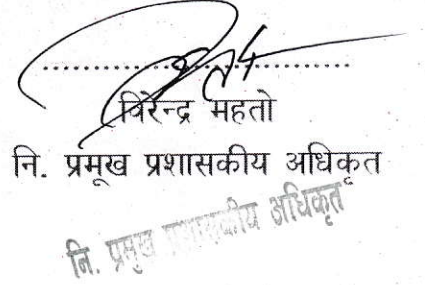 विरेन्द्र महतो
नि. प्रमुख प्रशासकीय अधिकृत
नि. प्रमुख प्रशासकीय अधिकृत